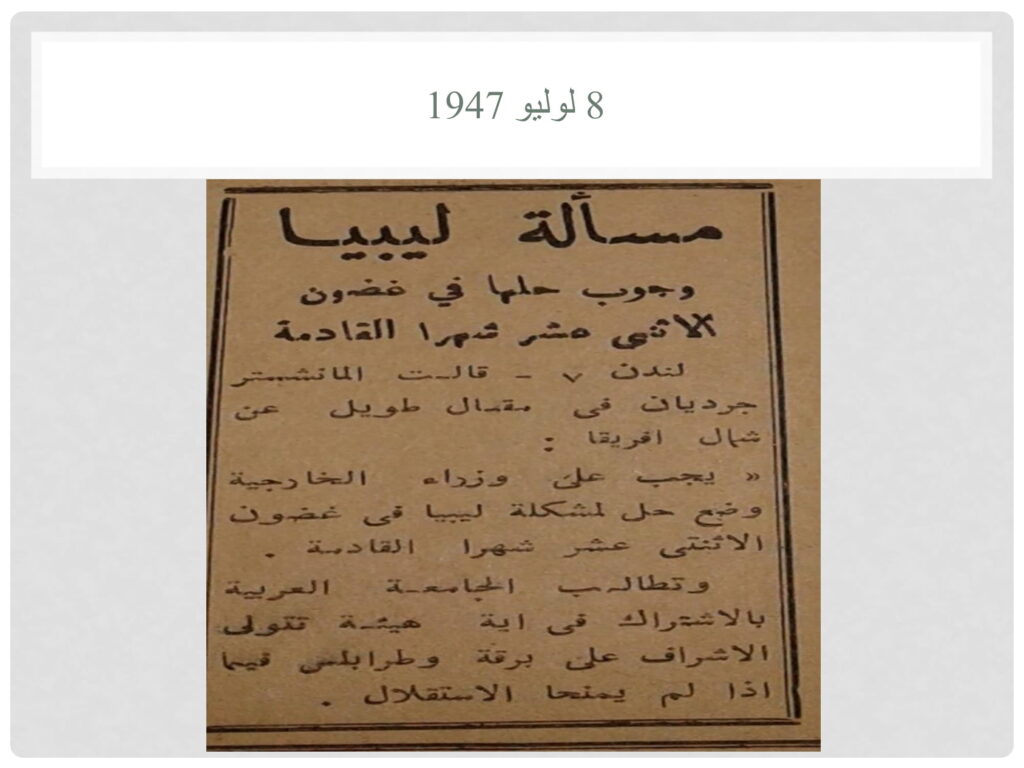 8 لوليو 1947
مسألة ليبيا
وجوب حلها في غضون
الاثنى عشر شهرا القادمة
لندن ٧ - قالت المانشستر
جرديان فى مقال طويل عن
شمال افريقا :
« يجب على وزراء الخارجية
وضع حل لمشكلة ليبيا فى غضون
الاثنتى عشر شهرا القادمة .
وتطالب الجامعة العربية
بالاشتراك فى اية هيئة تتولى
الاشراف على برقة وطرابلس فيما
اذا لم يمنحا الاستقلال .